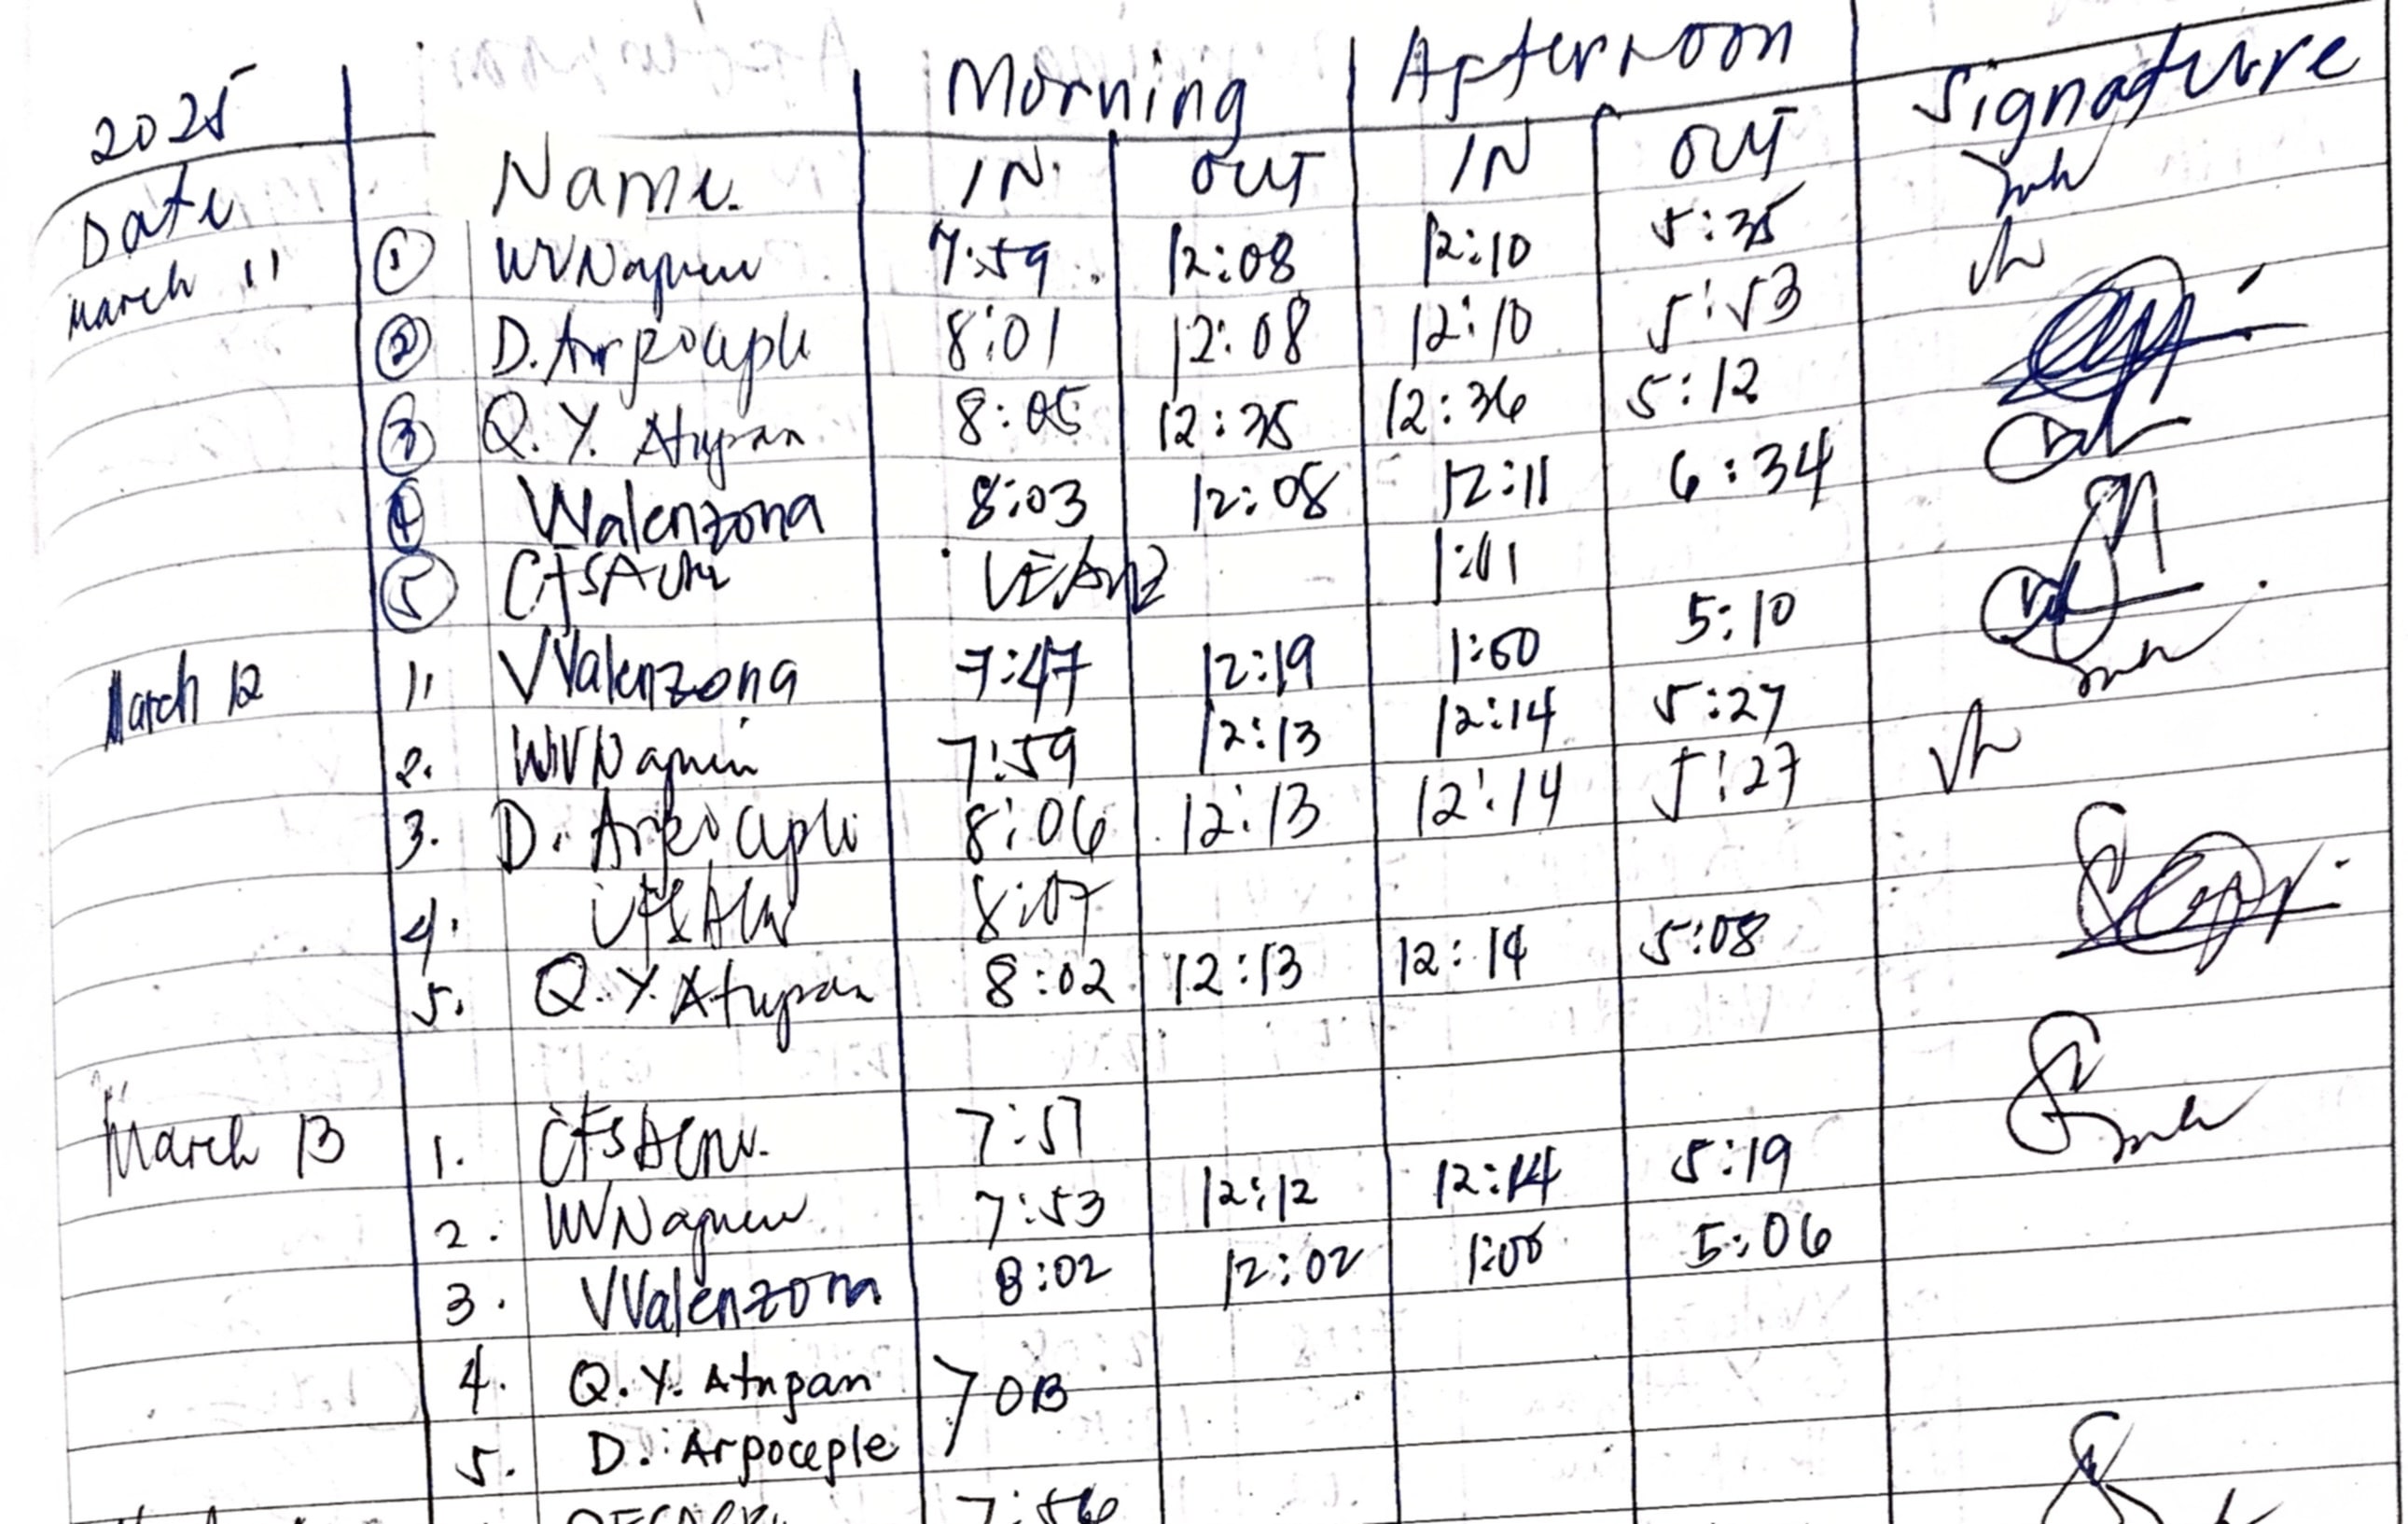 2025 Morning Afternoon Signature
Date Name IN OUT IN OUT
March 11 1 WVNapun 7:59 12:08 12:10 5:35
2 D. Arpoceple 8:01 12:08 12:10 5:53
3 Q. Y. Atupan 8:05 12:35 12:36 5:12
4 VValenzona 8:03 12:08 12:11 6:34
5 1:01
March 12 1. VValenzona 7:47 12:19 1:00 5:10
2. WVNapun 7:59 12:13 12:14 5:27
3. D. Arpoceple 8:06 12:13 12:14 5:27
4. 8:07
5. Q. Y. Atupan 8:02 12:13 12:14 5:08
March 13 1. 7:57
2. WVNapun 7:53 12:12 12:14 5:19
3. VValenzona 8:02 12:02 1:00 5:06
4. Q. Y. Atupan OB
5. D. Arpoceple
7:56